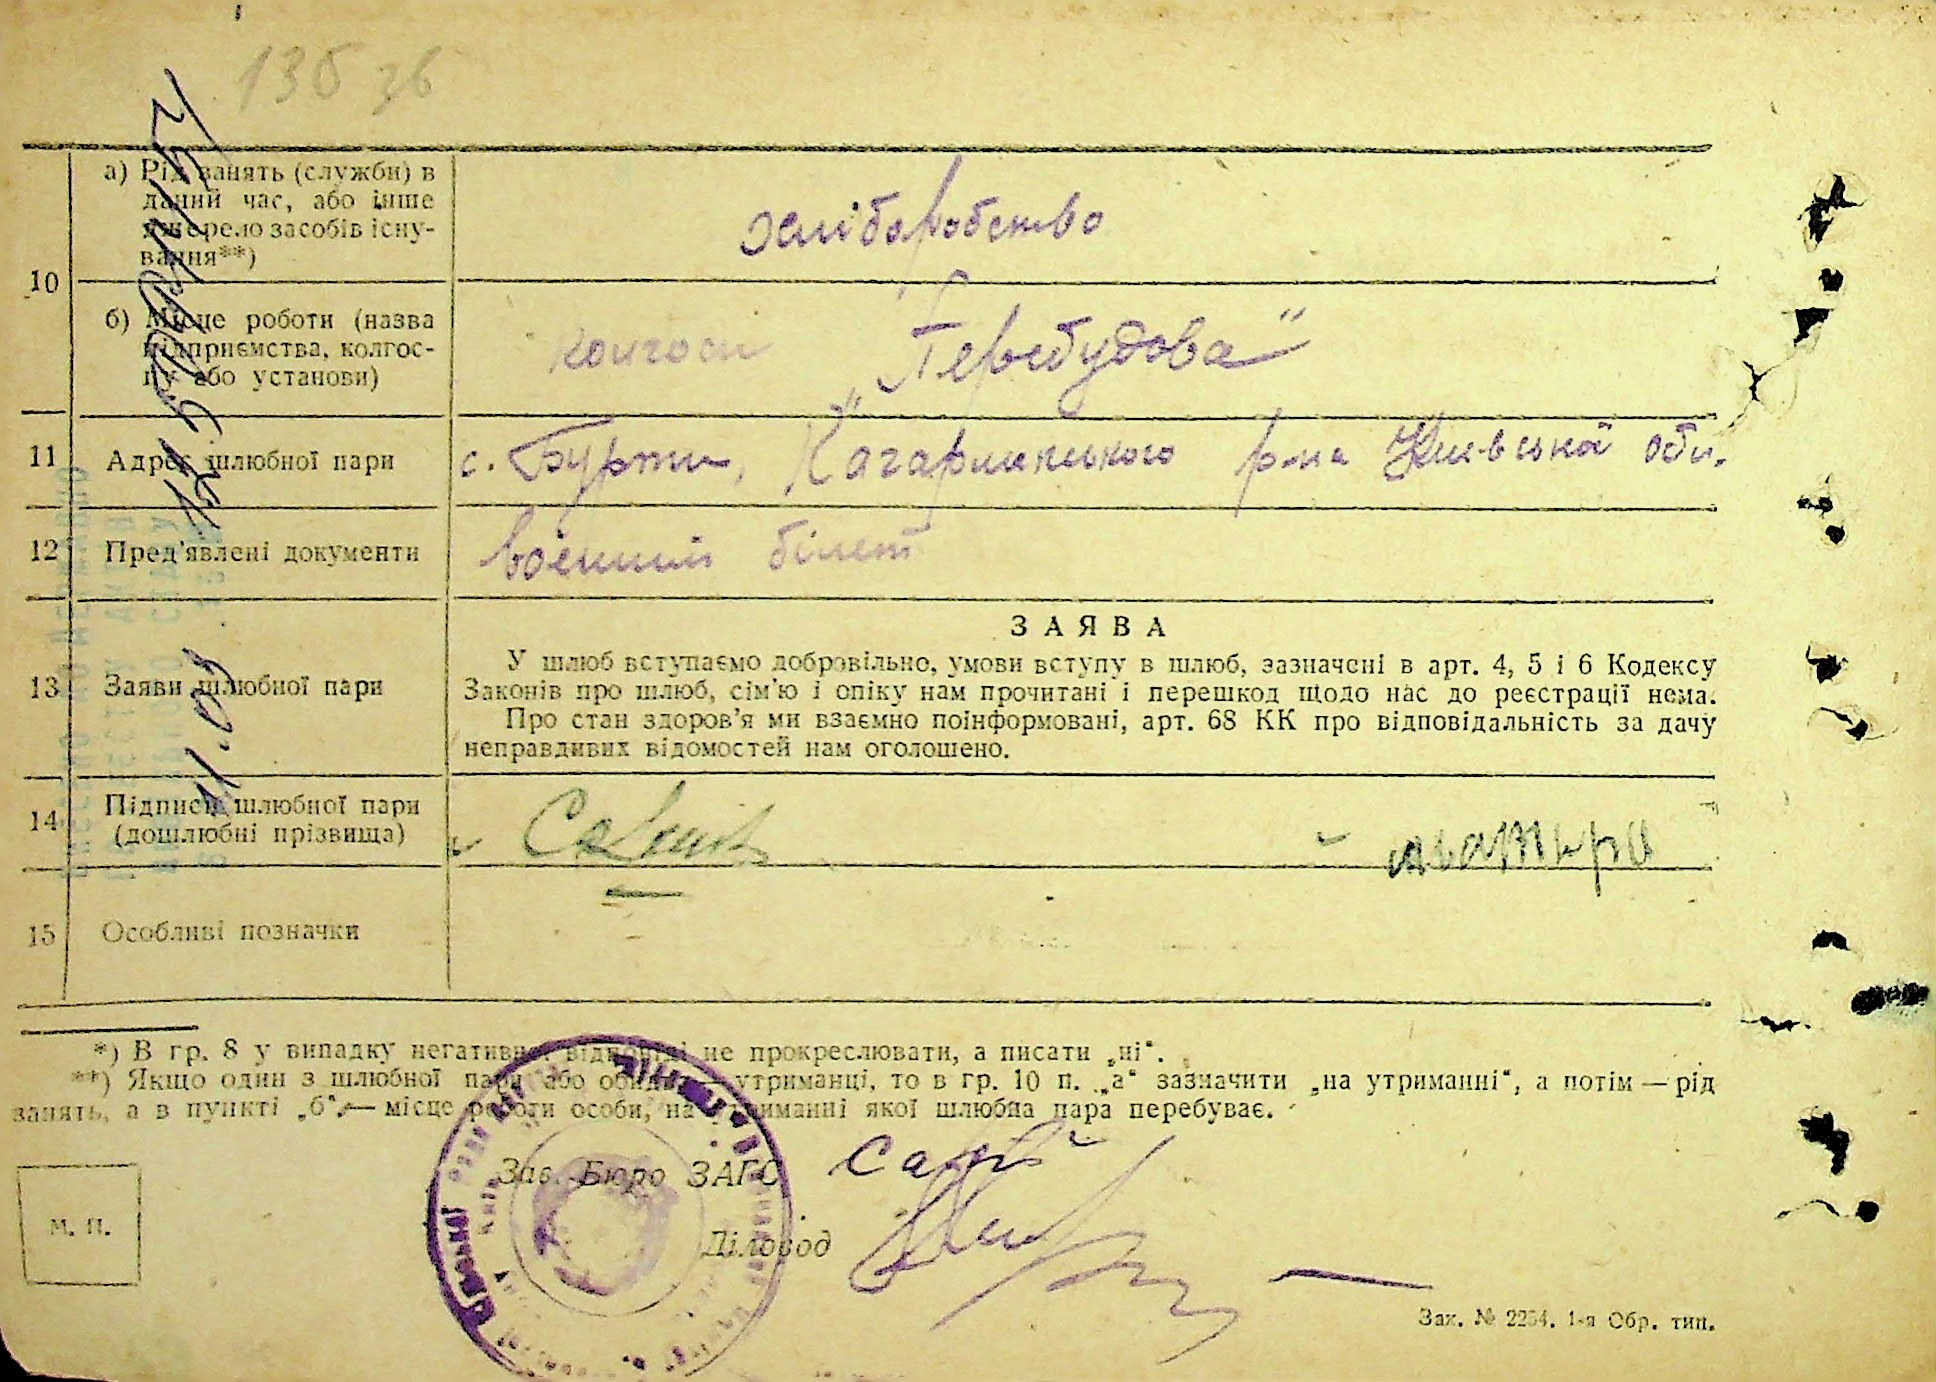 136 зв
10
а) Рід занять (служби) в
даний час, або інше
джерело засобів існу-
вання**)
хліборобство
б) Місце роботи (назва
підприємства, колгос-
пу або установи)
колгосп „Перебудова"
11 Адрес шлюбної пари с. Бурти, Кагарлицького р-на Київської обл.
12 Пред'явлені документи воєнний білет
13 Заяви шлюбної пари
ЗАЯВА
У шлюб вступаємо добровільно, умови вступу в шлюб, зазначені в арт. 4, 5 і 6 Кодексу
Законів про шлюб, сім'ю і опіку нам прочитані і перешкод щодо нас до реєстрації нема.
Про стан здоров'я ми взаємно поінформовані, арт. 68 КК про відповідальність за дачу
неправдивих відомостей нам оголошено.
14 Підписи шлюбної пари
(дошлюбні прізвища)
15 Особливі позначки
*) В гр. 8 у випадку негативної відповіді не прокреслювати, а писати „ні".
**) Якщо один з шлюбної пари або обидва — утриманці, то в гр. 10 п. „а" зазначити „на утриманні", а потім — рід
занять, а в пункті „б" — місце роботи особи, на утриманні якої шлюбна пара перебуває.
Зав. Бюро ЗАГС
М. П.
Діловод
Зак. № 2254. 1-я Обр. тип.